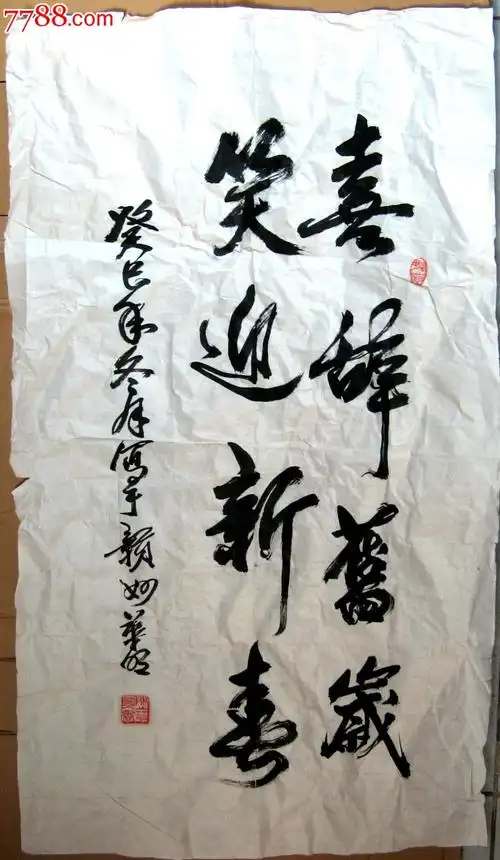 7788.com
喜辞舊歲
笑迎新春
癸巳年冬月寫于贛